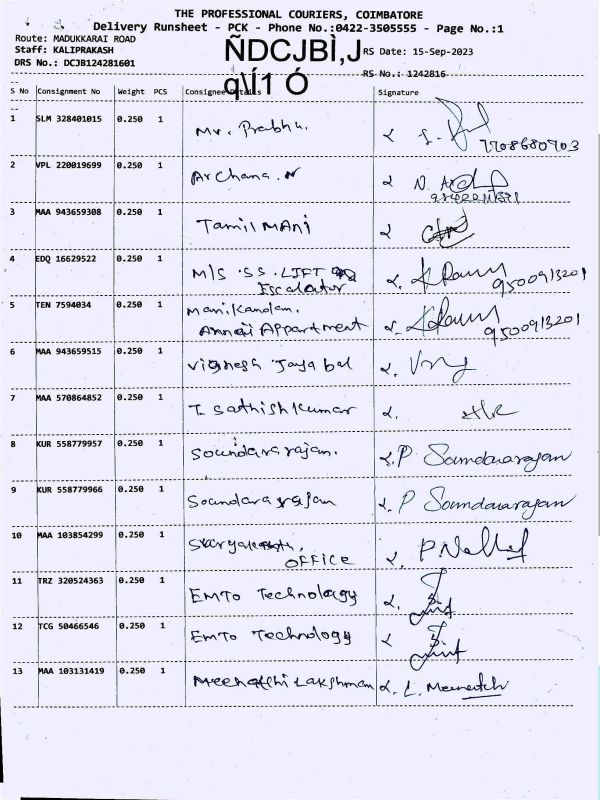 THE PROFESSIONAL COURIERS, COIMBATORE
Delivery Runsheet - PCK - Phone No.:0422-3505555 - Page No.:1
Route: MADUKKARAI ROAD
Staff: KALIPRAKASH
DRS No.: DCJB124281601
ÑDCJBÌ,J
q\Í1 Ó
RS Date: 15-Sep-2023
RS No.: 1242816
S No Consignment No Weight PCS Consignee Details Signature
1 SLM 328401015 0.250 1 Mr. Prabhu.
7708680703
2 VPL 220019699 0.250 1 Archana. N
3 MAA 943659308 0.250 1 Tamil MAni
4 EDQ 16629522 0.250 1 M/S .SS .LIFT
Escalator 9500913201
5 TEN 7594034 0.250 1 Mani Kandan.
Appartment 9500913201
6 MAA 943659515 0.250 1 Vignesh Jayabal
7 MAA 570864852 0.250 1 T. Sathish Kumar
8 KUR 558779957 0.250 1 Soundararajan. P Soundararajan
9 KUR 558779966 0.250 1 Soundararajan P Soundararajan
10 MAA 103854299 0.250 1
OFFICE
11 TRZ 320524363 0.250 1 EMTO Technology
12 TCG 50466546 0.250 1 EMTO Technology
13 MAA 103131419 0.250 1 Meenatchi Lakshmanan L. Meenatchi